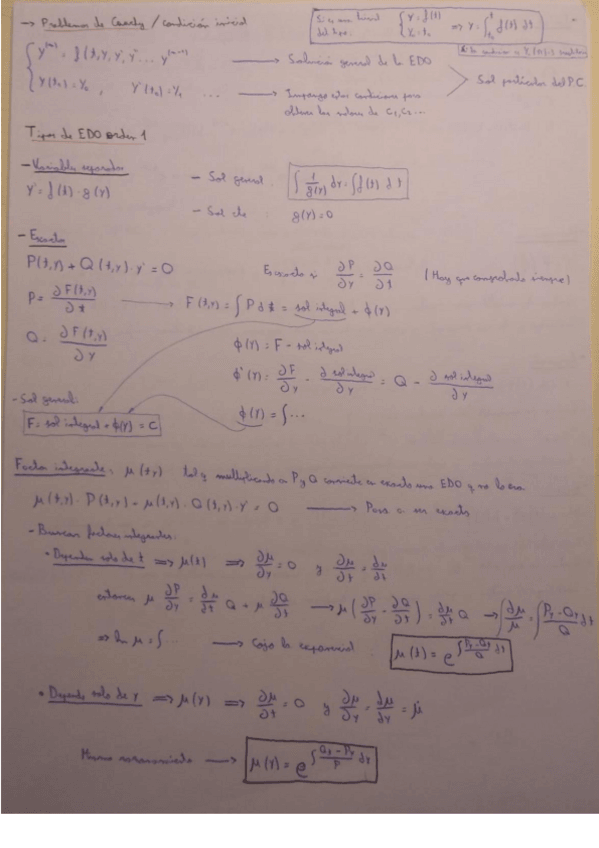 → Problema de Cauchy / condición inicial
Si es una trivial del tipo: { y' = f(t) y₀ = t₀ ⇒ y = ∫ f(t) dt
{ y⁽ⁿ⁾ = f(t, y, y', y'' ... y⁽ⁿ⁻¹⁾ → Solución general de la EDO
y(t₀) = y₀, y'(t₀) = y₁ ... → Impongo estas condiciones para obtener los valores de C₁, C₂...
> Sol particular del P.C.
Tipos de EDO orden 1
- Variables separadas
y' = f(t) · g(y)
- Sol general: ∫ 1/g(y) dy = ∫ f(t) dt
- Sol cte: g(y) = 0
- Exacta
P(t,y) + Q(t,y) · y' = 0
Exacta si ∂P/∂y = ∂Q/∂t (Hay que comprobarlo siempre)
P = ∂F(t,y)/∂t → F(t,y) = ∫ P dt = sol integral + ϕ(y)
Q = ∂F(t,y)/∂y
ϕ(y) = F - sol integral
ϕ'(y) = ∂F/∂y - ∂ sol integral/∂y = Q - ∂ sol integral/∂y
- Sol general:
F = sol integral + ϕ(y) = C
ϕ(y) = ∫ ...
Factor integrante: μ(t,y) tal q multiplicando a P y Q convierte en exacta una EDO q no lo era
μ(t,y) · P(t,y) + μ(t,y) · Q(t,y) · y' = 0 → Pasa a ser exacta
- Buscar factores integrantes:
• Depende solo de t ⇒ μ(t) ⇒ ∂μ/∂y = 0 y ∂μ/∂t = dμ/dt
entonces μ ∂P/∂y = dμ/dt Q + μ ∂Q/∂t → μ (∂P/∂y - ∂Q/∂t) = dμ/dt Q → ∫ dμ/μ = ∫ Py - Qt/Q dt
⇒ ln μ = ∫ ... → Cojo la exponencial
μ(t) = e^∫ Py - Qt/Q dt
• Depende solo de y ⇒ μ(y) ⇒ ∂μ/∂t = 0 y ∂μ/∂y = dμ/dy = μ̇
Mismo razonamiento → μ(y) = e^∫ Qt - Py/P dy